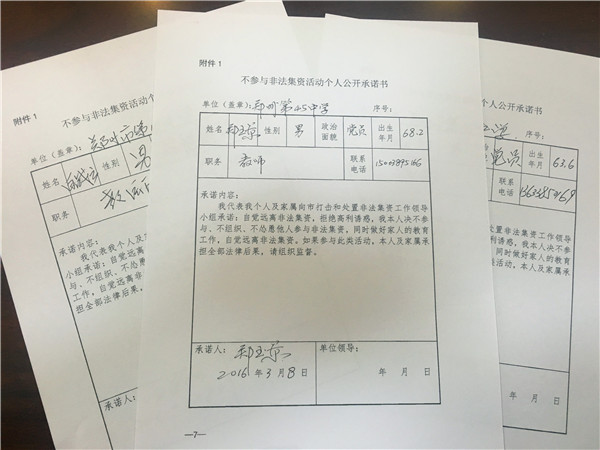 附件1
不参与非法集资活动个人公开承诺书
单位（盖章）：郑州第45中学 序号：
姓名 郑玉京 性别 男 政治面貌 党员 出生年月 68.2
职务 教师 联系电话
承诺内容：
我代表我个人及家属向市打击和处置非法集资工作领导
小组承诺：自觉远离非法集资，拒绝高利诱惑，我本人决不参
与、不组织、不怂恿他人参与非法集资，同时做好家人的教育
工作，自觉远离非法集资。如果参与此类活动，本人及家属承
担全部法律后果。请组织监督。
承诺人： 郑玉京 单位领导：
2016年3月8日 年 月 日
—7—
附件1
不参与非法集资活动个
单位（盖章）： 郑州市
姓名 性别 男
职务 教师
承诺内容：
我代表我个人及
小组承诺：自觉远离
与、不组织、不怂恿
工作，自觉远离非
担全部法律后果。
承诺人：
人公开承诺书
序号：
党员 出生年月 63.6
联系电话
集资工作领导
利诱惑，我本人决不参
同时做好家人的教育
本人及家属承
领导：
年 月 日